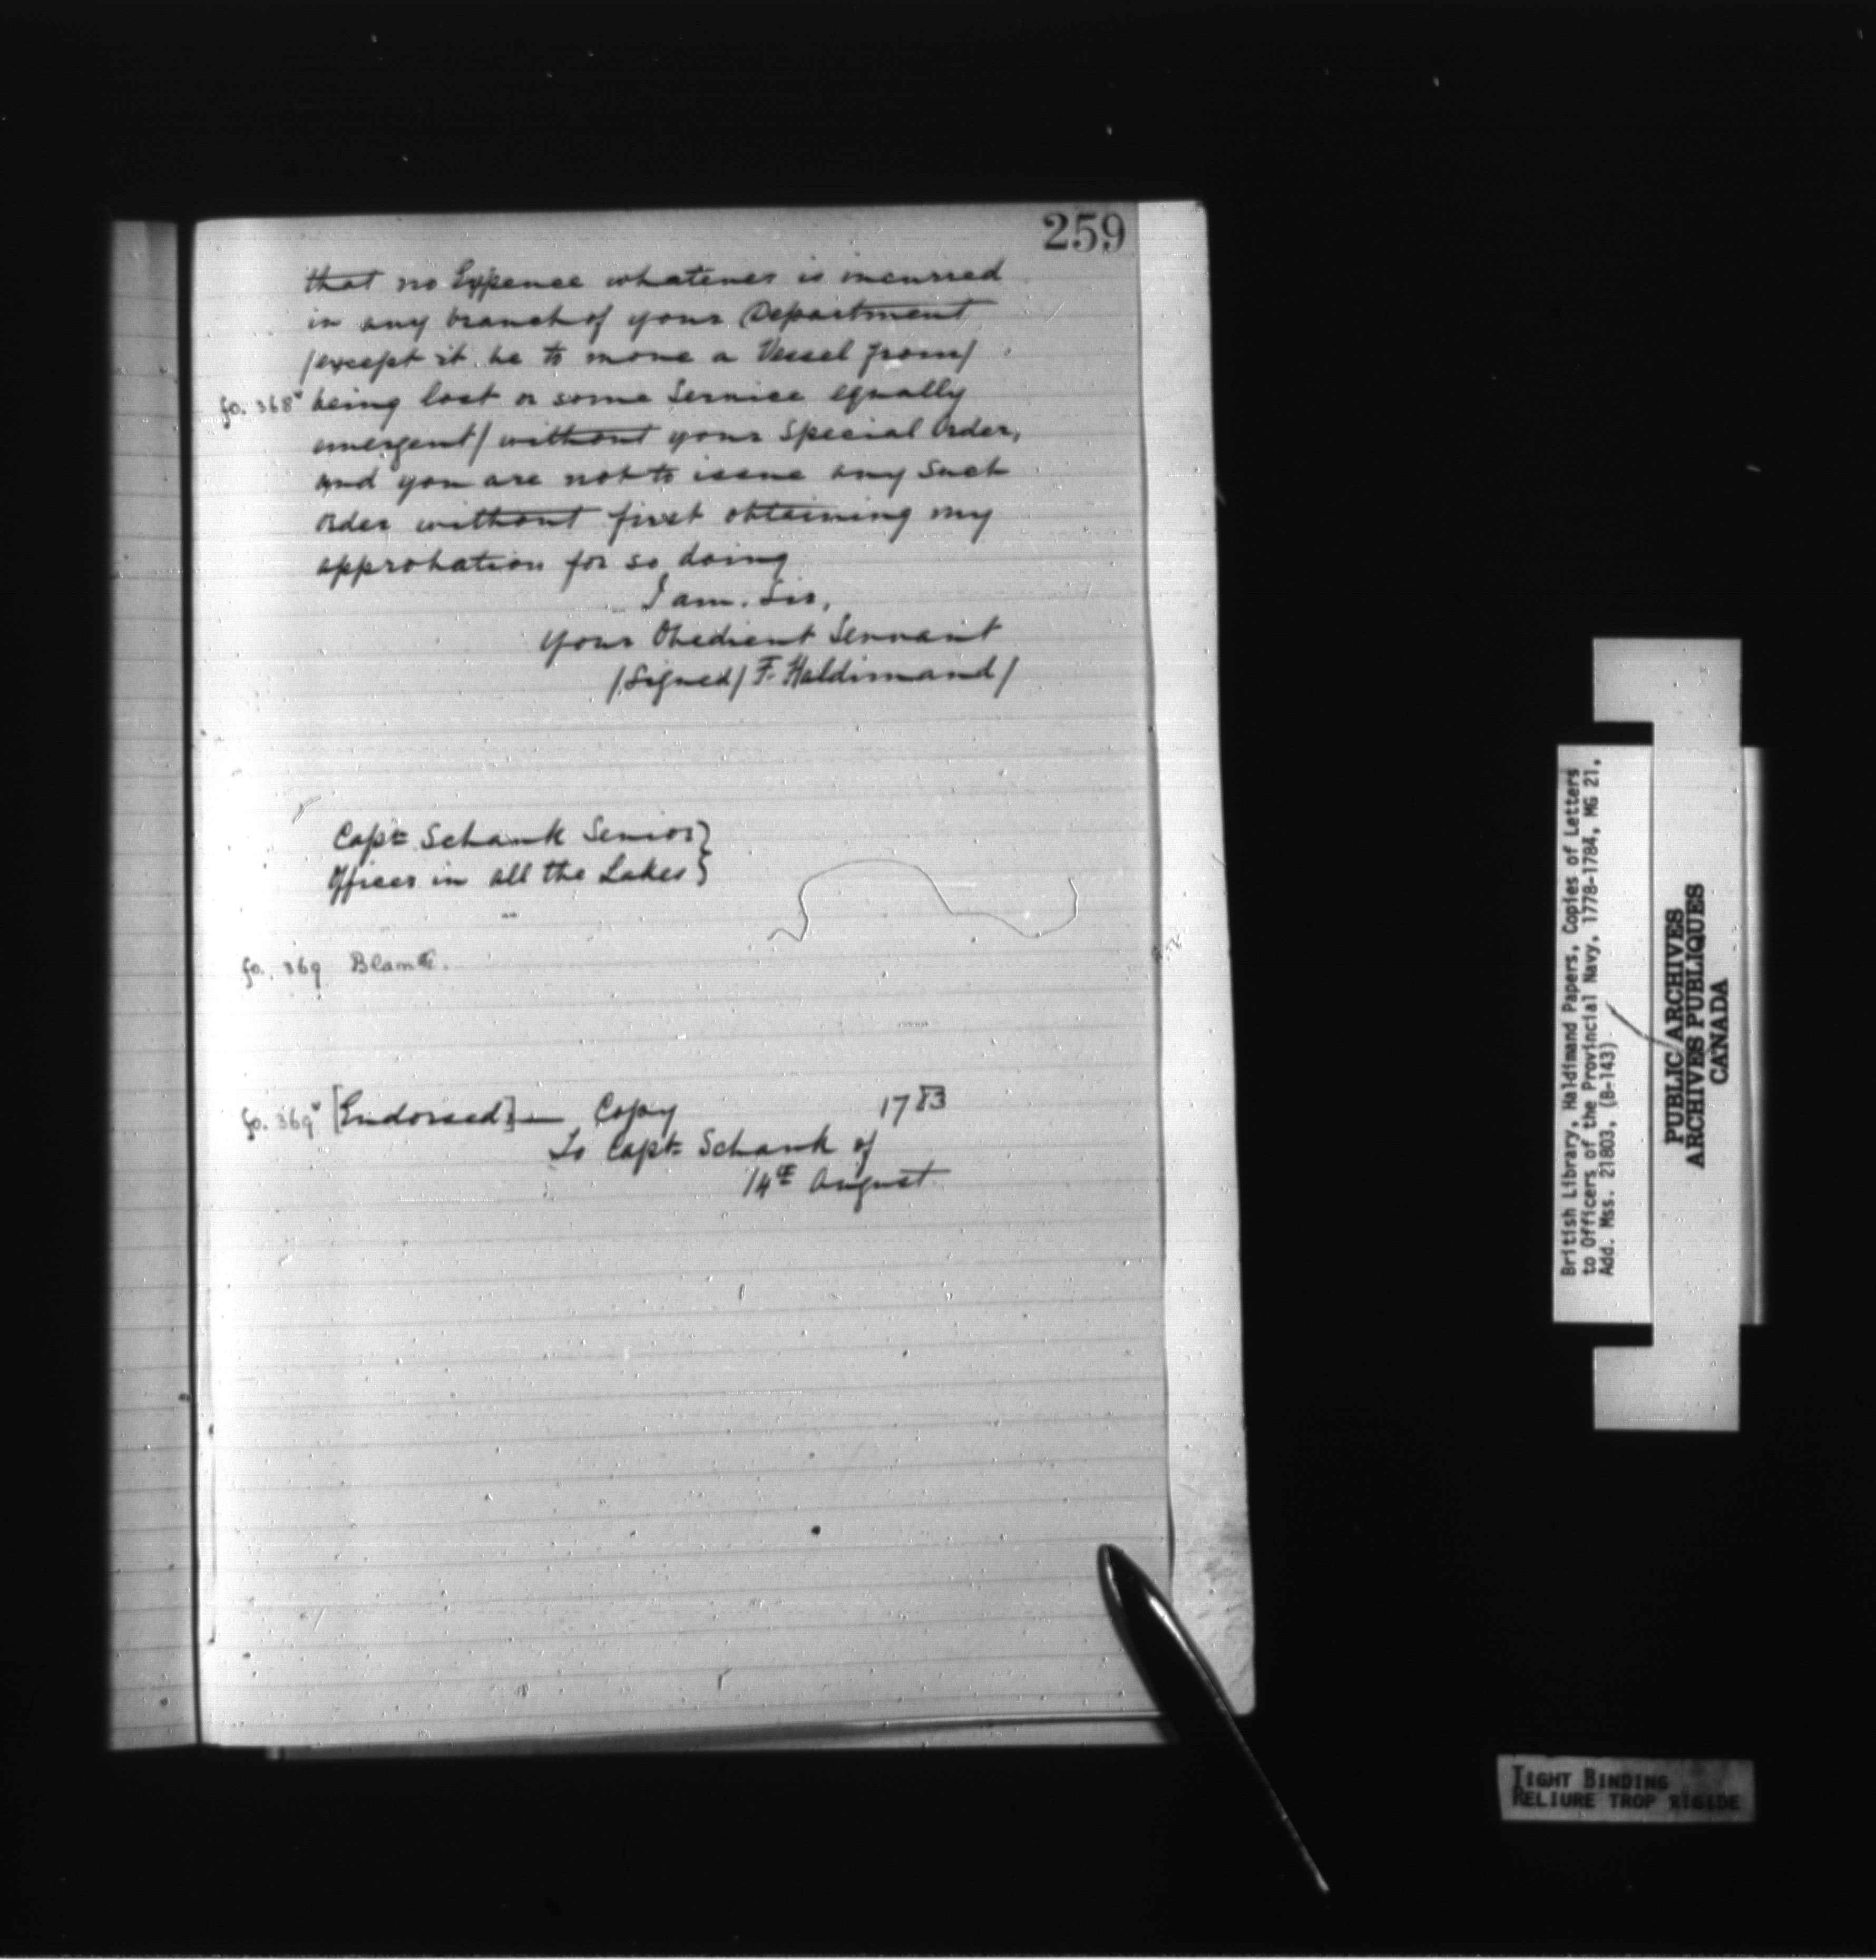 259
that no Expence whatever is incurred
in any branch of your Department
/except it be to move a Vessel from/
fo. 368v being lost or some Service equally
emergent/ without your Special Order,
and you are not to issue any Such
Order without first obtaining my
approbation for so doing
I am. Sir,
your Obedient Servant
/Signed/ F. Haldimand/
Capt= Schank Senior}
Officer in all the Lakes}
fo. 369 Blank.
fo. 369v [Endorsed] — Copy 1783
To Capt= Schank of
14th August
British Library, Haldimand Papers, Copies of Letters
to Officers of the Provincial Navy, 1778-1784, MG 21,
Add. Mss. 21803, (B-143)
PUBLIC ARCHIVES
ARCHIVES PUBLIQUES
CANADA
TIGHT BINDING
RELIURE TROP RIGIDE